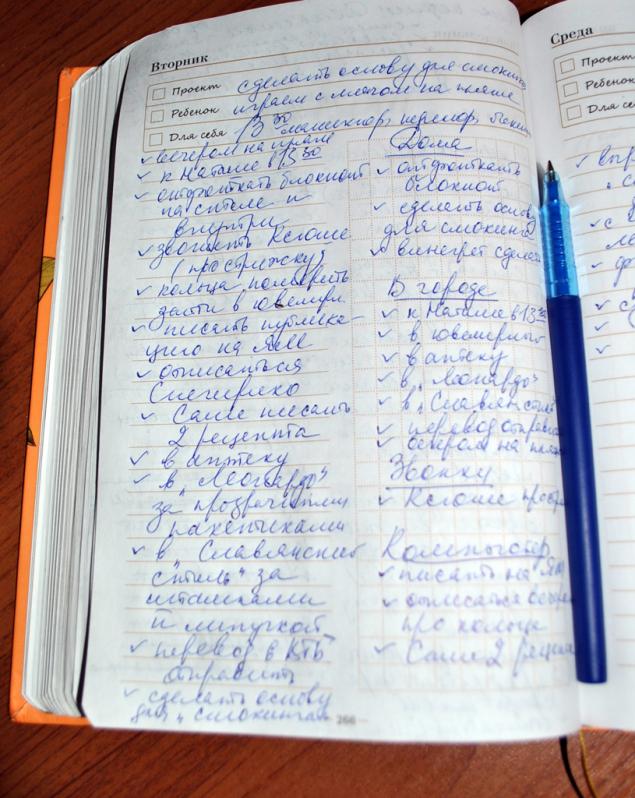 Вторник
Проект сделать основу для смокинга
Ребенок играем с мячом на пляже
Для себя 13 30 маникюр,
вечером на пляж
к Наташе в 13 30
отфоткать блокнот
на столе и
внутри
звонить Ксюше
(про стрижку)
кольца померить
зайти в ювелирн.
писать публика-
цию на ЯМ
отписаться
Саше писать
2 рецепта
в аптеку
в "Леонардо"
за прозрачными
пакетиками
в "Славянский
стиль" за
штанишками
и липучкой
перевод в ВТБ
отправить
сделать основу
для "смокинга"
266
Дома
отфоткать
блокнот
сделать основу
для смокинга
винегрет сделать
В городе
к Наташе в 13 30
в ювелирный
в аптеку
в "Леонардо"
в "Славян. стиль"
перевод отправить
вечером на пляж
Звонки
Ксюше про стри
Компьютер
писать на ЯМ
отписаться
про кольца
Саше 2 рецепта
Среда
Проект
Ребенок
Для се